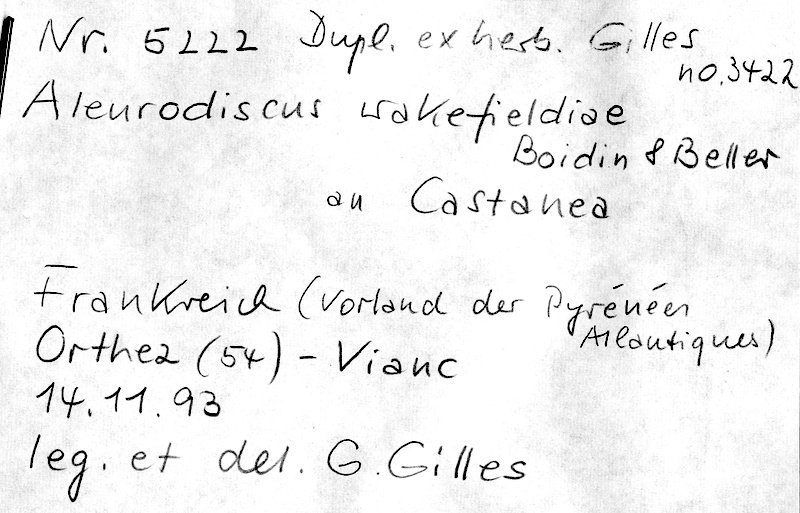 Nr. 5222 Dupl. ex herb. Gilles
no. 3422
Aleurodiscus wakefieldiae
Boidin & Beller
an Castanea
Frankreich (Vorland der Pyrénéen
Atlantiques)
Orthez (54) - Vianc
14.11.93
leg. et det. G. Gilles